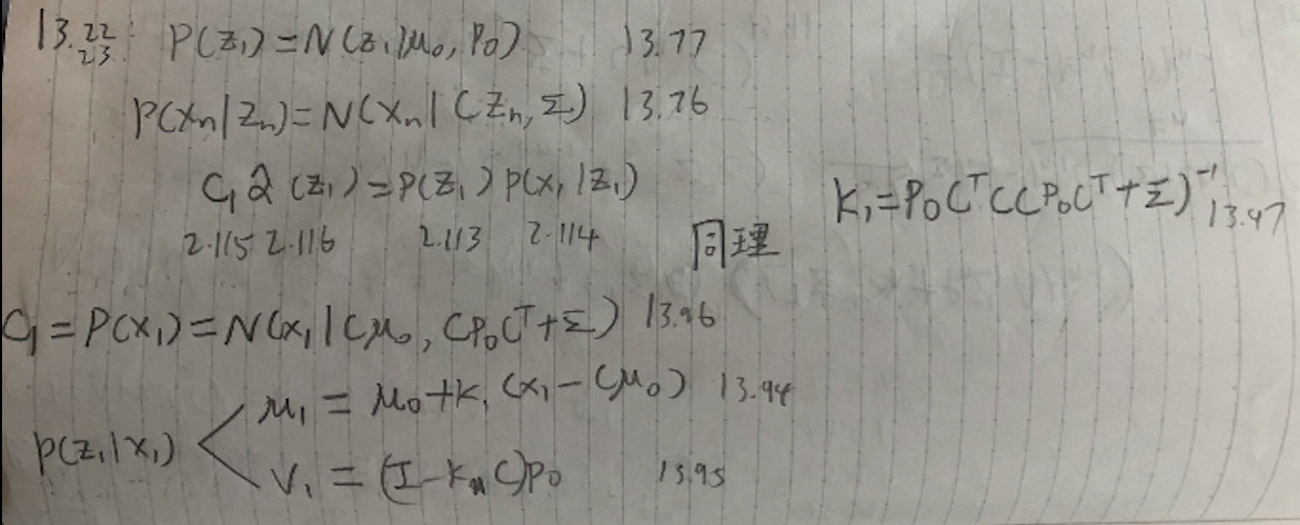 13.22 23: P(z₁)=N(z₁|μ₀, P₀) 13.77
P(xₙ|zₙ)=N(xₙ|Czₙ, Σ) 13.76
C₁ α̂(z₁)=P(z₁)P(x₁|z₁)
2.115 2.116 2.113 2.114 同理
K₁=P₀Cᵀ(CP₀Cᵀ+Σ)⁻¹ 13.97
C₁=P(x₁)=N(x₁|Cμ₀, CP₀Cᵀ+Σ) 13.96
μ₁=μ₀+K₁(x₁-Cμ₀) 13.94
P(z₁|x₁)
V₁=(I-KₙC)P₀ 13.95